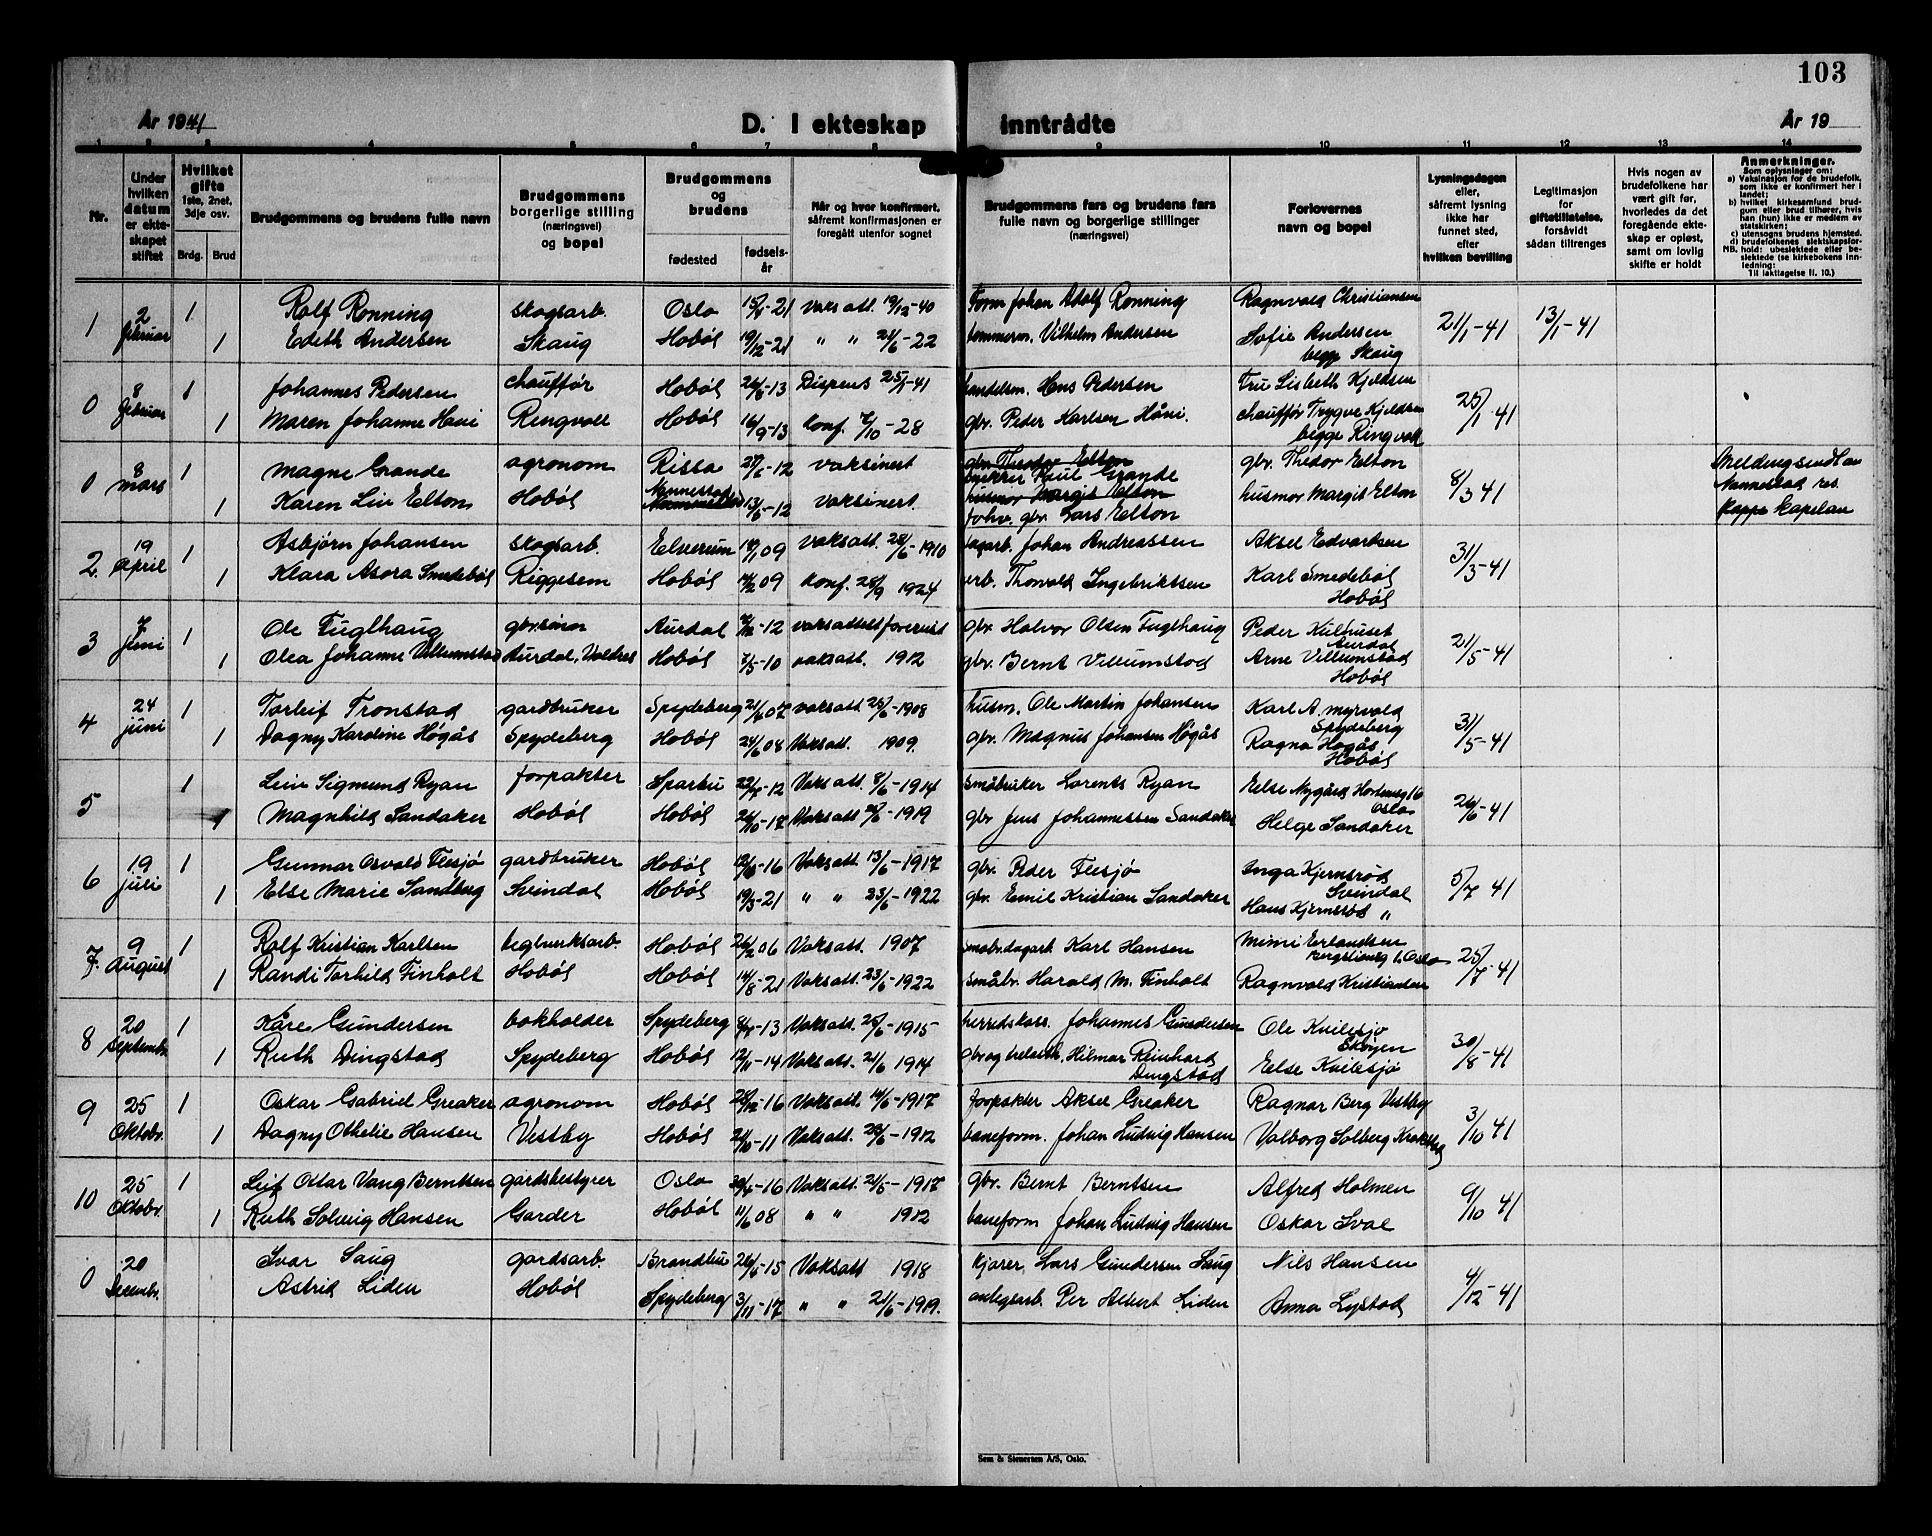 103
År 1941
D. I ekteskap inntrådte
År 19
1 2 3 4 5 6 7 8 9 10 11 12 13 14
Nr.
Under hvilken datum er ekteskapet stiftet
Hvilket gifte 1ste, 2net, 3dje osv.
Brdg. Brud
Brudgommens og brudens fulle navn
Brudgommens borgerlige stilling (næringsvei) og bopel
Brudgommens og brudens
fødested
fødselsår
Når og hvor konfirmert. såfremt konfirmasjonen er foregått utenfor sognet
Brudgommens fars og brudens fars fulle navn og borgerlige stillinger (næringsvei)
Forlovernes navn og bopel
Lysningsdagen eller, såfremt lysning ikke har funnet sted, efter hvilken bevilling
Legitimasjon for giftetillatelse, forsåvidt sådan tiltrenges
Hvis nogen av brudefolkene har vært gift før, hvorledes da det foregående ekteskap er opløst, samt om lovlig skifte er holdt
Anmerkninger.
Som oplysninger om:
a) Vaksinasjon for de brudefolk, som ikke er konfirmert her i landet;
b) hvilket kirkesamfund brudgom eller brud tilhører, hvis han (hun) ikke er medlem av statskirken;
c) utensogns brudens hjemsted.
d) brudefolkenes slektskapsforhold: ubeslektede eller beslektede (se kirkebokens innledning:
NB. Til iakttagelse II. 10.)
1 2 februar 1 Rolf Rønning skogsarb. Oslo 15/1-21 Vaks att. 19/12-40 Form Johan Adolf Rønning Ragnvald Christiansen 21/1-41 13/1-41
1 Edith Andersen Skaug Hobøl 19/12-21 " " 21/6-22 tømmerm. Vilhelm Andersen Sofie Andersen
begge Skaug
0 8 februar 1 Johannes Pedersen chauffør Hobøl 13 Dispens 25/1-41 handelsm. Hans Pedersen Fru Lisbeth Kjeldsen 25/1 41
1 Maren Johanne Hani Ringvoll Hobøl 16/9-13 Konf. 7/10-28 gbr. Peder Karlsen Håni. chauffør Trygve Kjeldsen
begge Ringvoll
0 8 mars 1 Magne Grande agronom Rissa 12 vaksinert gbr. Thedor Elton gbr. Thedor Elton 8/3 41 Melding sendt av
Paul Grande
1 Karen Liv Elton Hobøl Nannestad 13/6-12 vaksinert. husmor Margit Elton husmor Margit Elton Nannestad res.
gbr. Lars Elton kapelan
2. 19 april 1 Asbjørn Johansen skogsarb. Elverum 09 vaksatt. 28/6-1910 Johan Andreassen Aksel Edvardsen 31/3-41
1 Klara Asora Smedebøl Riggesem Hobøl 09 Konf. 28/9 1924 arb. Thorvald Ingebriktsen Karl Smedebøl
Hobøl
3 7 juni 1 Ole Fuglhaug gbr.sønn Aurdal 12 vaksattest forevist gbr. Halvor Olsen Fuglhaug Peder Kulhuset 21/5-41
Aurdal
1 Olea Johanne Villumstad Aurdal, Valdres Hobøl 7/5-10 vaksatt. 1912 gbr. Bernt Villumstad Arne Villumstad
Hobøl
4 24 juni 1 Torleif Tronstad gardbruker Spydeberg 21/6 07 vaksatt 25/6-1908 husm. Ole Martin Johansen Karl A. Myrvold 31/5-41
Spydeberg
1 Dagny Karoline Høgås Spydeberg Hobøl 24/6 08 Vaksatt. 1909. gbr. Magnus Johansen Høgås Ragna Høgås,
Hobøl
5 1 Leiv Sigmund Ryan forpakter Sparbu 12 Vaks att 8/6-1914 Småbruker Lorents Ryan Else Nygård 26/6-41
Oslo
1 Magnhild Sandaker Hobøl Hobøl 26/10-17 Vaksatt 1919 gbr Jens Johannessen Sandaker Helge Sandaker
6 19 juli 1 Gunnar Osvald Flesjø gardbruker Hobøl 16 Vaks att 13/6-1917 gbr. Peder Flesjø Inga Kjernsrød 5/7 41
Svindal
1 Else Marie Sandberg Svindal Hobøl 19/3-21 " " 23/6-1922 gbr. Emil Kristian Sandaker Hans Kjernsrød "
7. 9 August 1 Rolf Kristian Karlsen teglverksarb. Hobøl 26/2 06 Vaksatt. 1907 Karl Hansen Mimi Erlandsen 25/7-41
Oslo
1 Randi Torhild Finholt Hobøl Hobøl 14/8-21 Vaksatt. 23/6-1922 småbr. Harald M. Finholt Ragnvald Kristiansen
8 20 Septembr. 1 Kåre Gundersen bokholder Spydeberg 13 Vaksatt. 25/6-1915 herredskass. Johannes Gundersen Ole Kvilesjø 30/8-41
Skøyen
1 Ruth Dingstad Spydeberg Hobøl 12/11-14 Vaksatt. 21/6 1914 Hilmar Reinhard Else Kvilesjø
Dingstad
9 25 Oktobr. 1 Oskar Gabriel Greaker agronom Hobøl 28/12-16 Vaksatt. 14/6-1917 forpakter Aksel Greaker Ragnar Berg Vestby 3/10 41
1 Dagny Othelie Hansen Vestby Hobøl 21/10-11 Vaksatt. 28/6-1912 baneform. Johan Ludvig Hansen Valborg Solberg Kråkstad
10 25 Oktobr 1 Leif Ottar Vang Berntsen gardsbestyrer Oslo 16 Vaksatt. 21/6-1917 gbr. Bernt Berntsen Alfred Holmen 9/10 41
1 Ruth Solveig Hansen Garder Hobøl 11/6 08 " " 1912 baneform Johan Ludvig Hansen Oskar Ival
0 20 Decembr. Ivar Saug gardsarb. Brandbu 15 Vaksatt 1918 kjører Lars Gundersen Saug Nils Hansen 4/12-41
Astrid Liden Hobøl Spydeberg 3/11-17 " " 21/6-1919. anlegsarb. Per Albert Liden Anna Lystad
Sem & Stenersen A/S, Oslo.